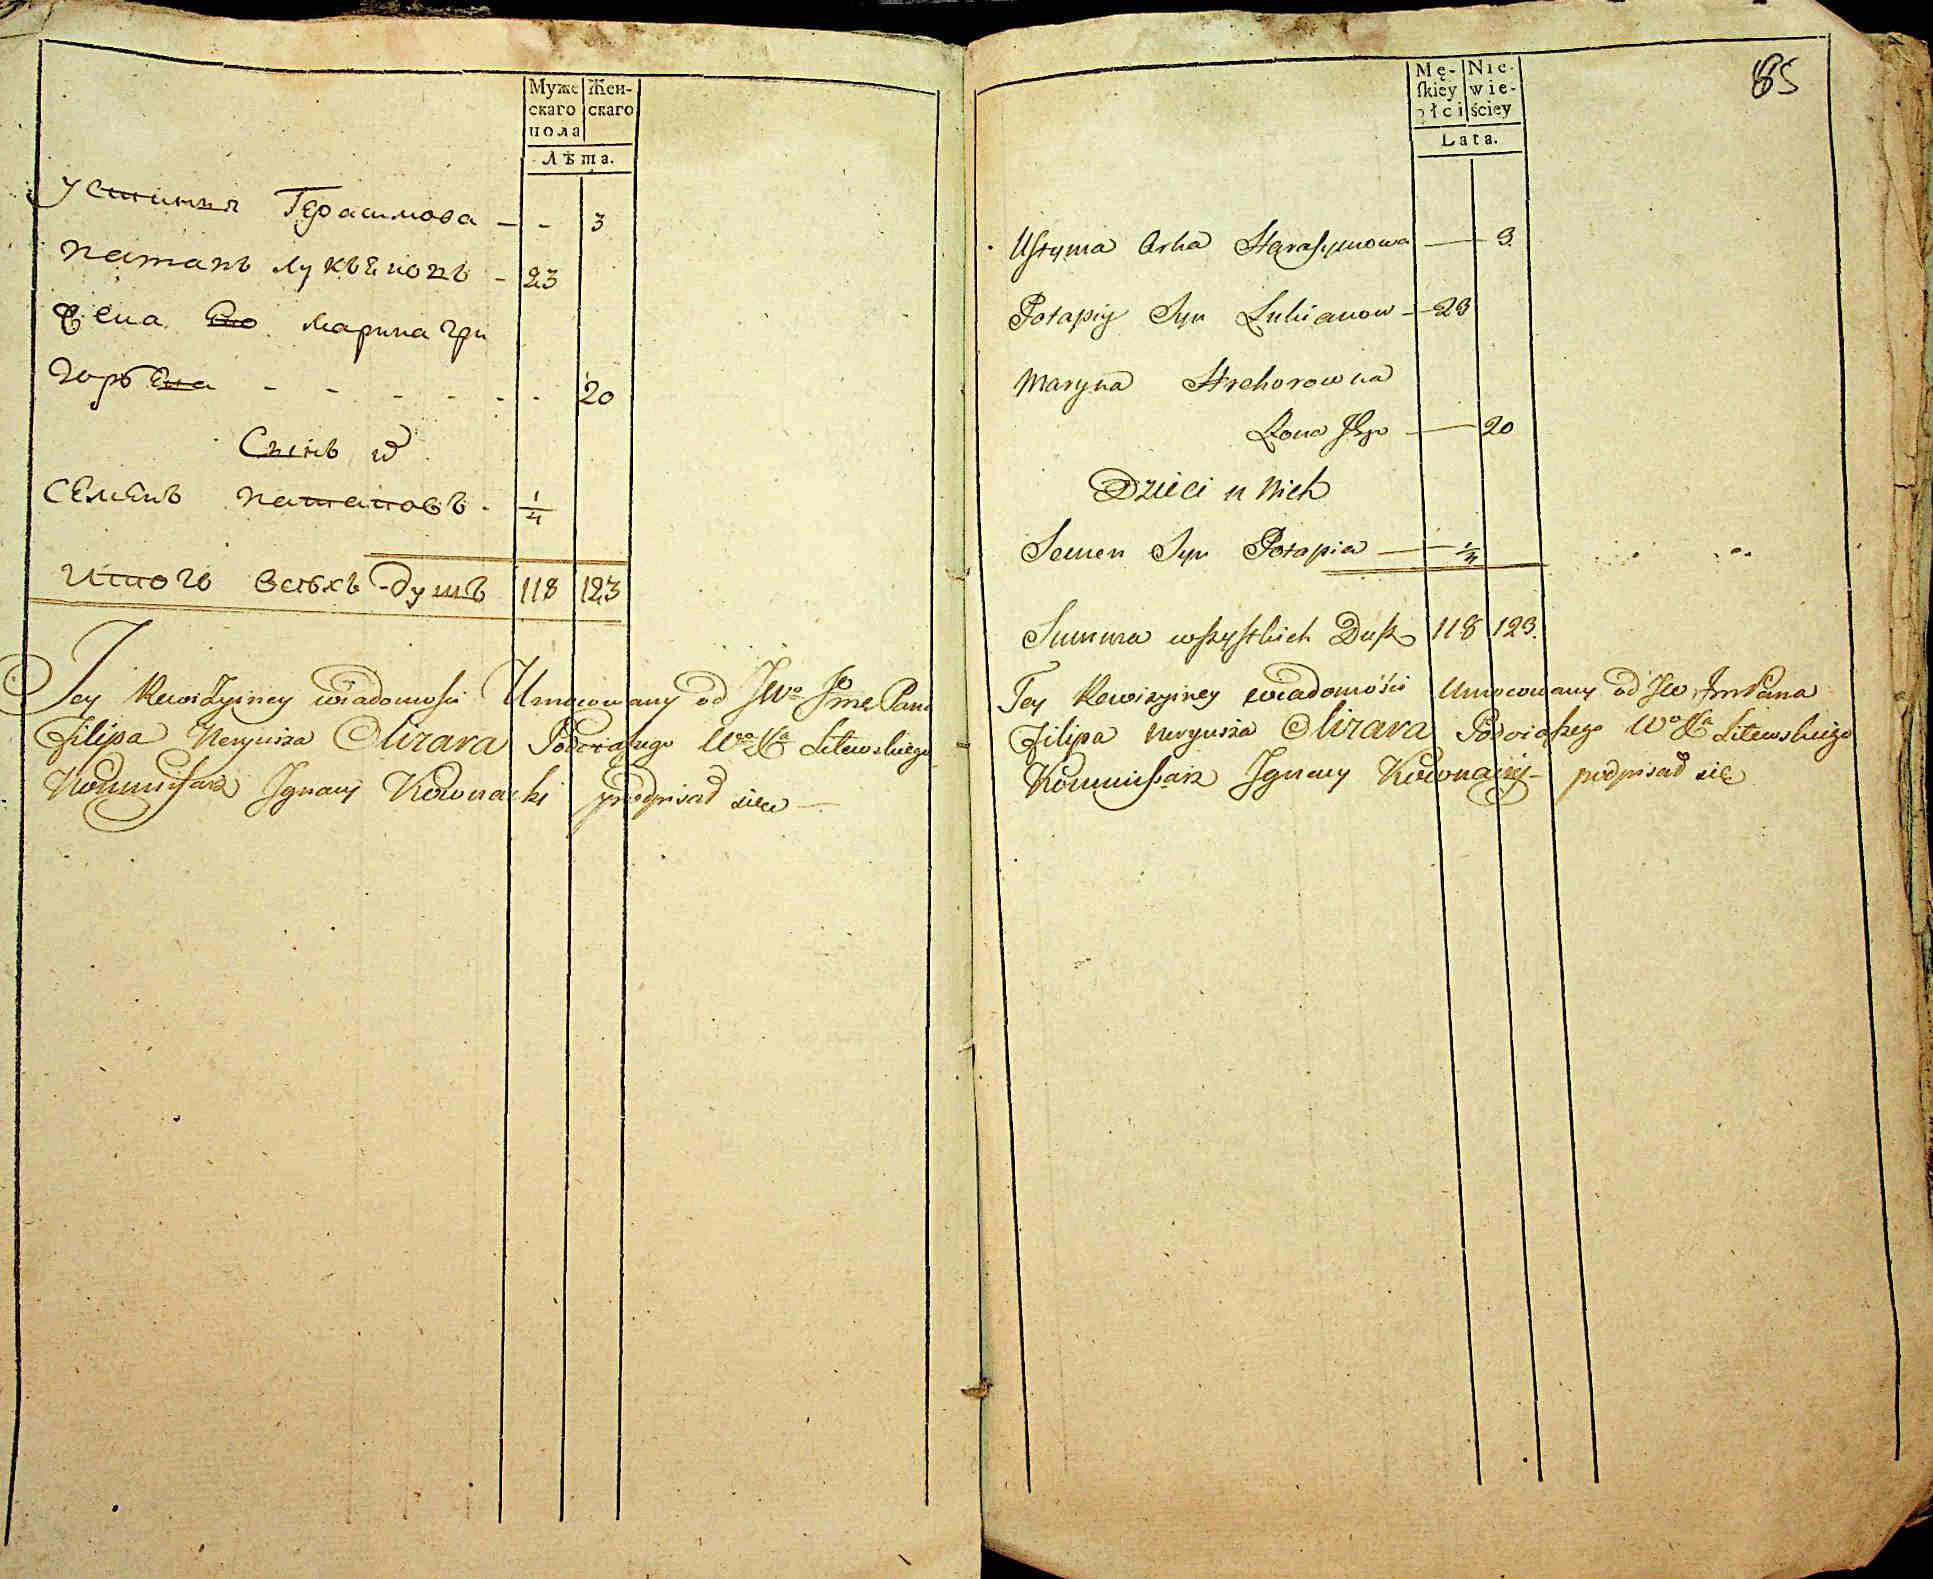 Муже Жен-
скаго скаго
пола
Лѣта.
Устиния Герасимова - - 3
Патапъ Лукъяновъ - 23
Жена Ево Марина Гри
горьева - - - - - - 20
Сынъ
Семенъ Патаповъ - 1/4
Итого всѣхъ душъ 118 123
Tey Rewizyiney wiadomości Umocowany od JWo Jme Pana
Filipa Neryusza Olizara Podczaszego Wo Xa Litewskiego
Kommissarz Jgnacy Kownacki podpisał się
85
Mę- Nie-
skiey wie-
płci ściey
Lata.
Ustyma Corka Harasymowa — 3
Potapiy Syn Lukianow — 23
Maryna Hrehorowna
Zona Jego — 20
Dzieci u Nich
Semen Syn Potapia — 1/4
Summa wszystkich Dusz 118 123.
Tey Rewizyiney wiadomości Umocowany od JW JmPana
Filipa Neryusza Olizara Podczaszego Wo Xa Litewskiego
Kommissarz Jgnacy Kownacki podpisał się